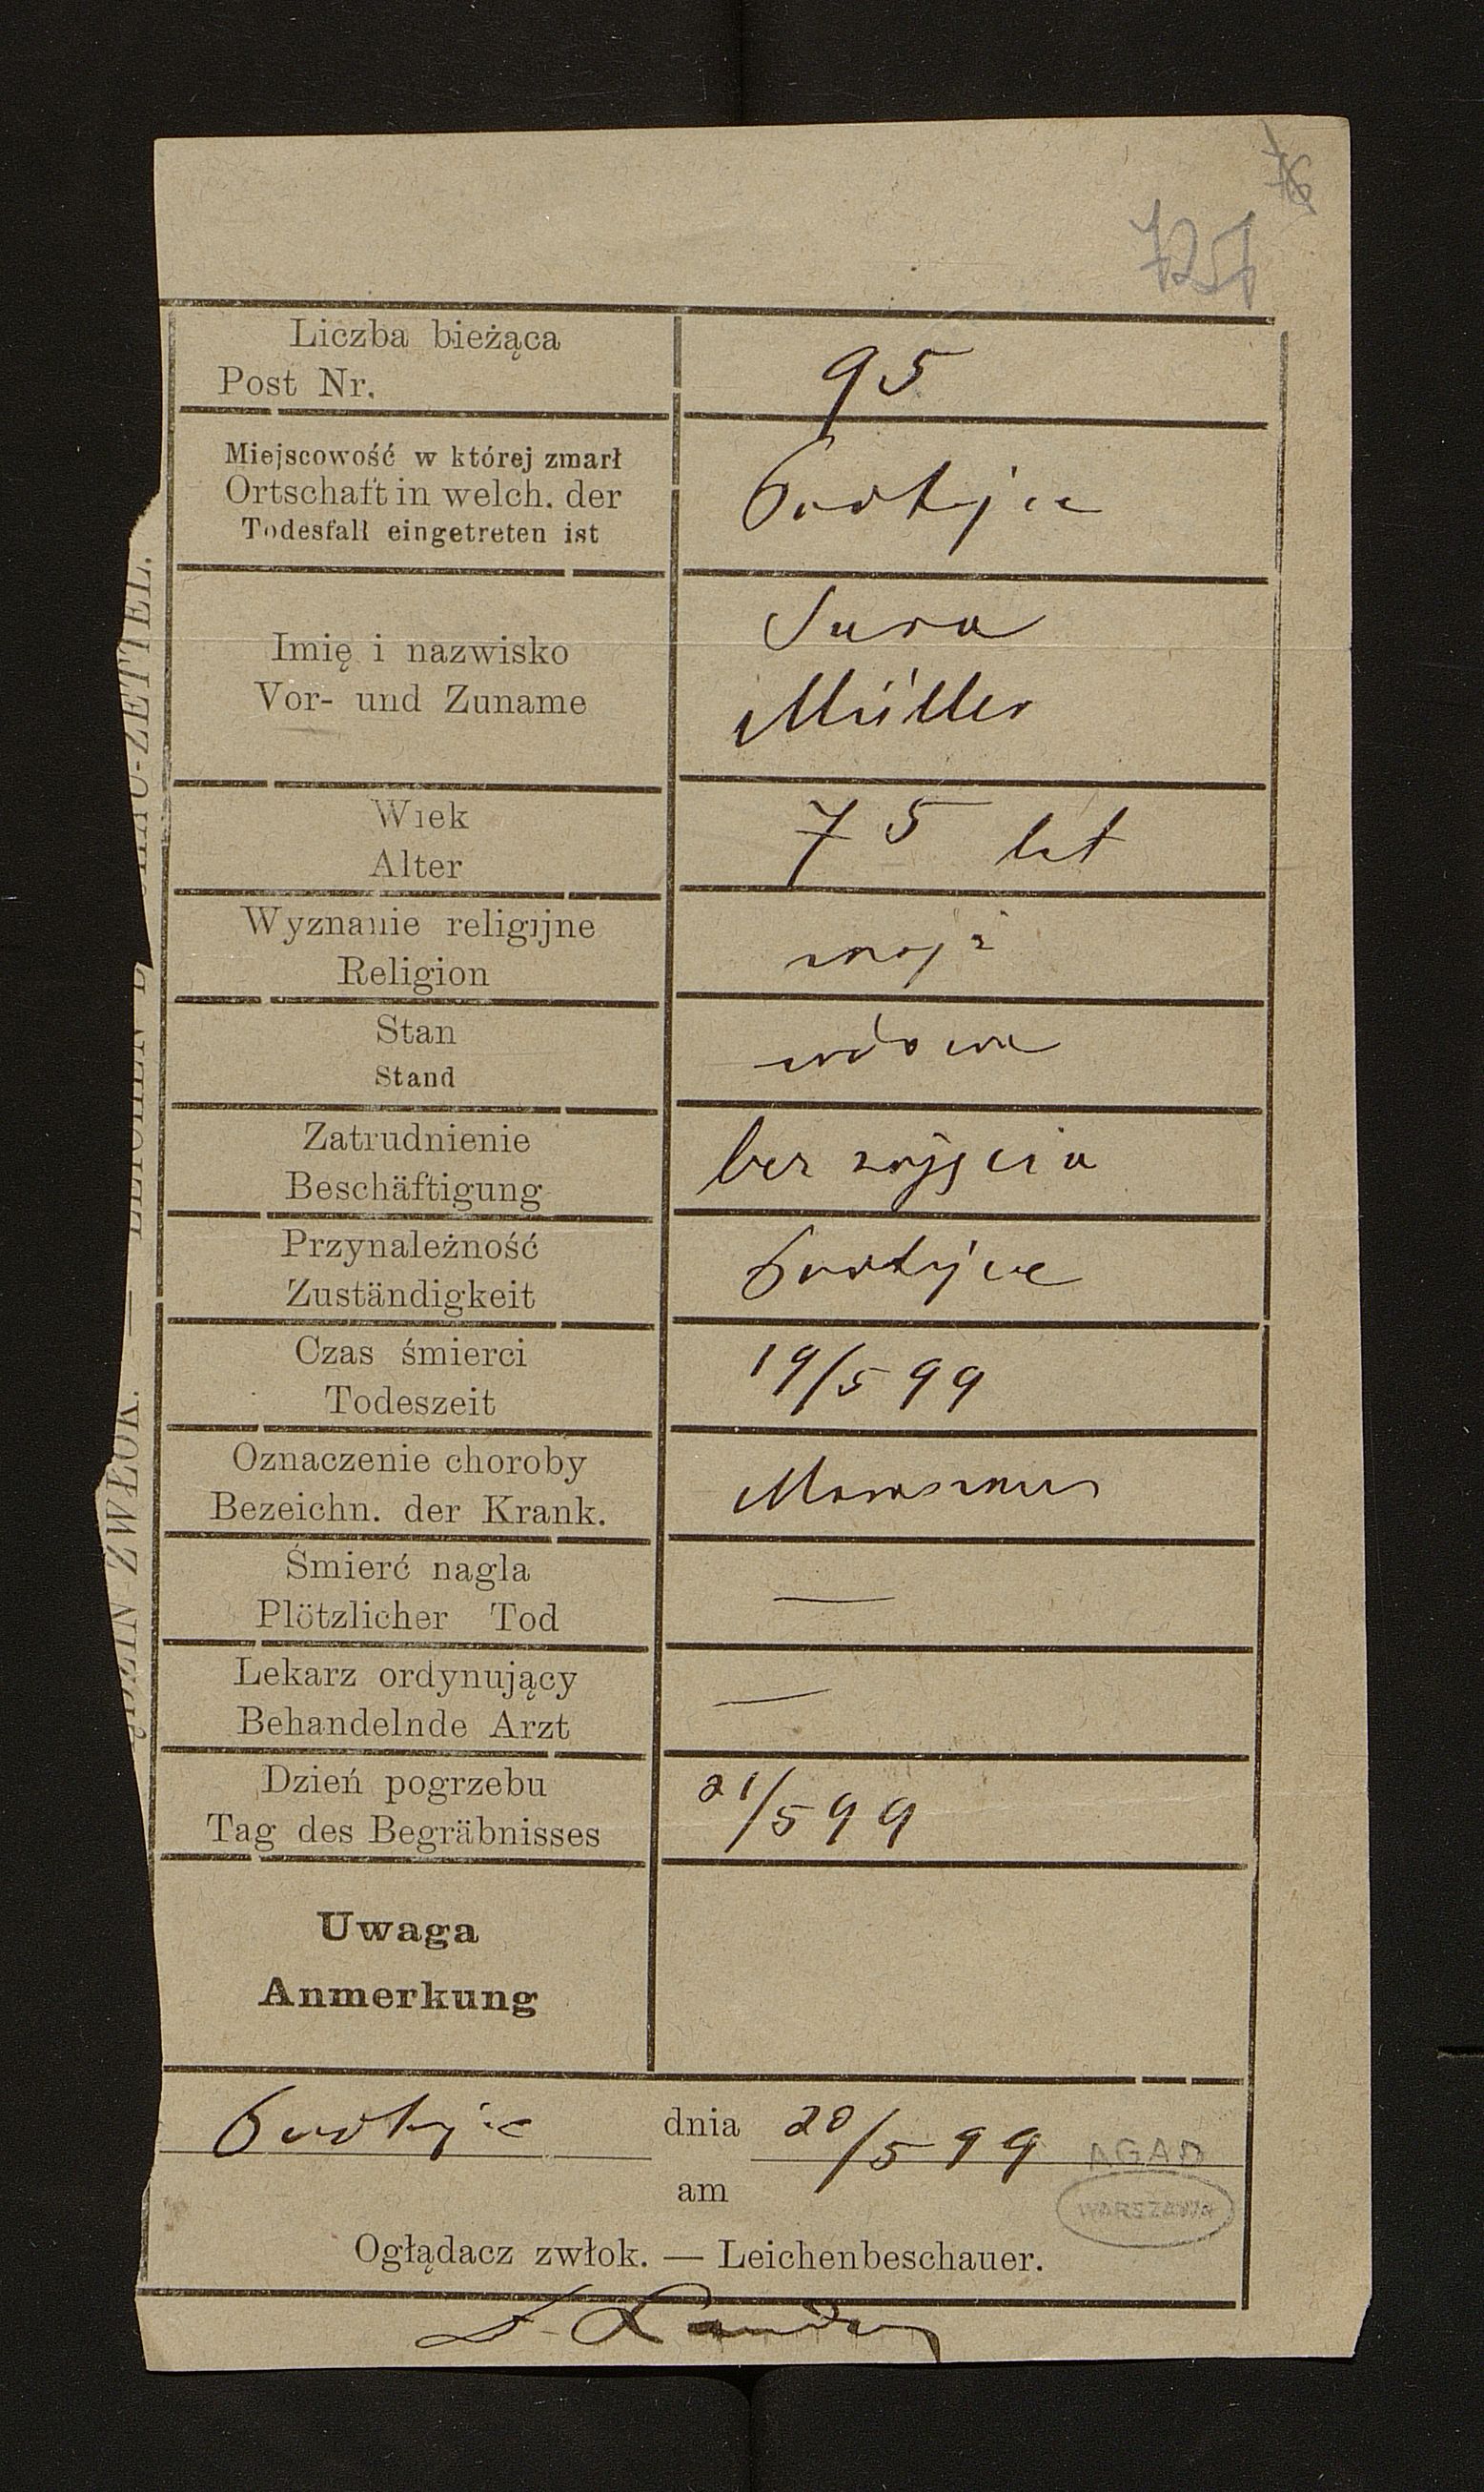 Liczba bieżąca
Post Nr.
95
Miejscowość w której zmarł
Ortschaft in welch. der
Todesfall eingetreten ist
Imię i nazwisko
Vor- und Zuname
Sura
Müller
Wiek
Alter
75 lat
Wyznanie religijne
Religion
mojż
Stan
Stand
wdowa
Zatrudnienie
Beschäftigung
bez zajęcia
Przynależność
Zuständigkeit
Czas śmierci
Todeszeit
19/5 99
Oznaczenie choroby
Bezeichn. der Krank.
Marasmus
Śmierć nagla
Plötzlicher Tod
—
Lekarz ordynujący
Behandelnde Arzt
—
Dzień pogrzebu
Tag des Begräbnisses
21/5 99
Uwaga
Anmerkung
dnia 20/5 99
am
AGAD
WARSZAWA
Oglądacz zwłok. — Leichenbeschauer.
Landau
ZWŁOK. — ZETTEL.